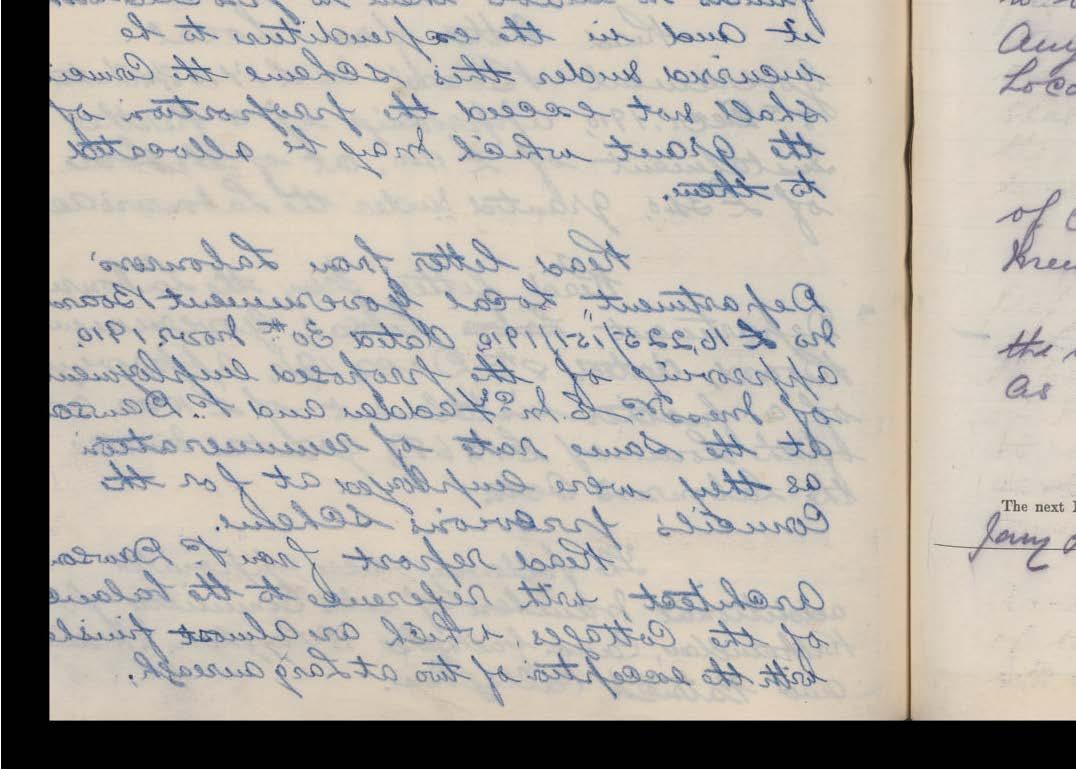 it and in the expenditure to be
incurred under this scheme the Counci
shall not exceed the proportion of
the grant which may be allocated
to them.
Read letter from Labourers'
Department Local Government Boar
No 16,225/ 1910 dated 30th Novr. 1910
approving of the proposed employmen
of Messrs and P. Dawso
at the same rate of remuneration
as they were employed at for the
Councils previous scheme.
Read report from P. Dawso
Architect with reference to the balanc
of the Cottages which are almost finishe
with the exception of two at
Any
Loca
of
the
as
The next
Jany